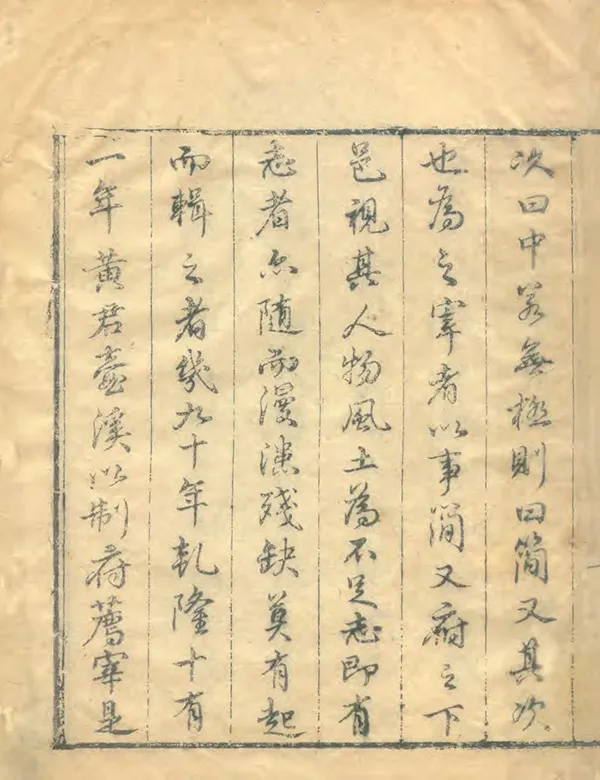 次曰中若無極則曰簡又其次
也為之宰者以事簡又府之下
邑視其人物風土為不足志即有
志者亦隨而漫漶殘缺莫有起
而輯之者幾九十年乾隆十有
一年黃君臺溪以制府薦宰是